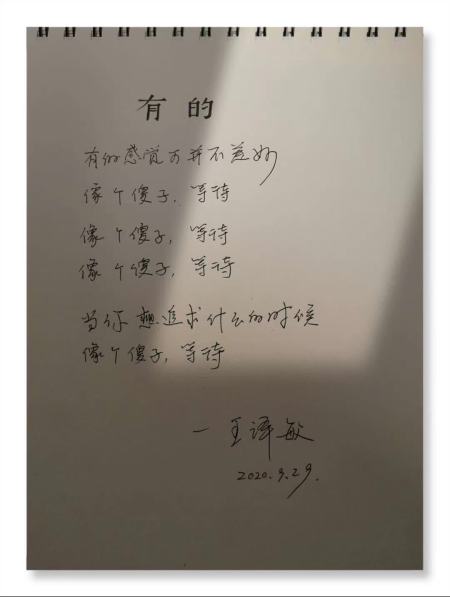 有的
有的感觉可并不美妙
像个傻子,等待
像个傻子,等待
像个傻子,等待
当你想追求什么的时候
像个傻子,等待
一王译敏
2020.9.29.